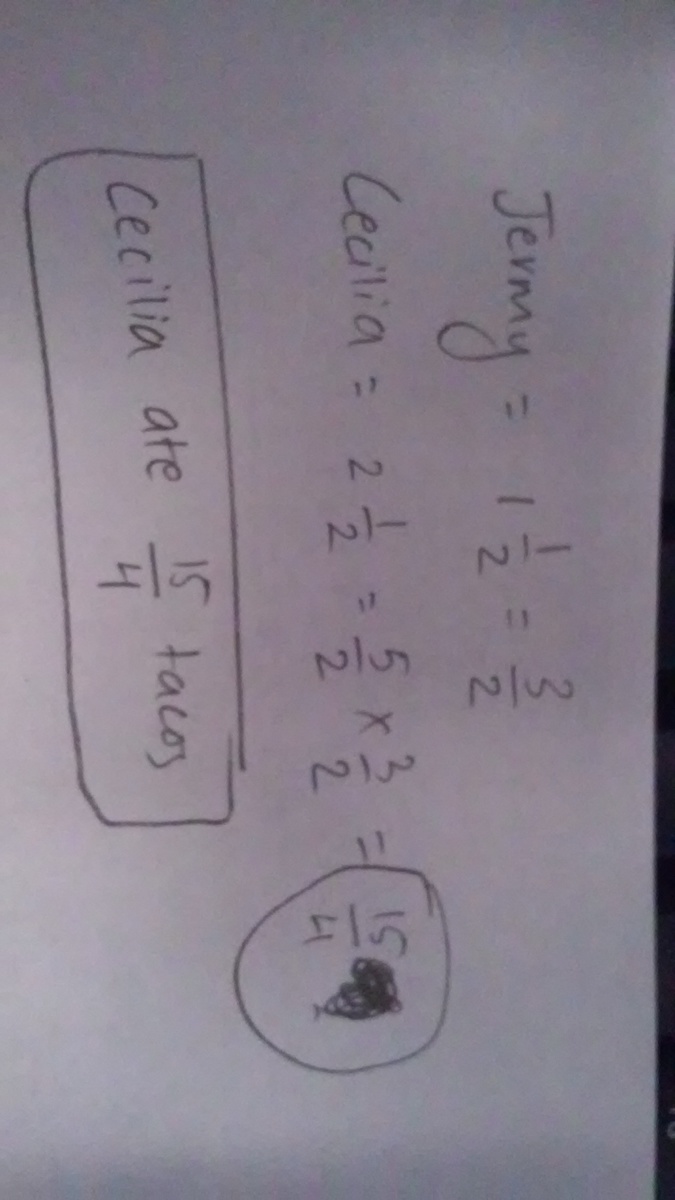 Jermy = 1 1/2 = 3/2
Cecilia = 2 1/2 = 5/2 x 3/2 = 15/4
Cecilia ate 15/4 tacos